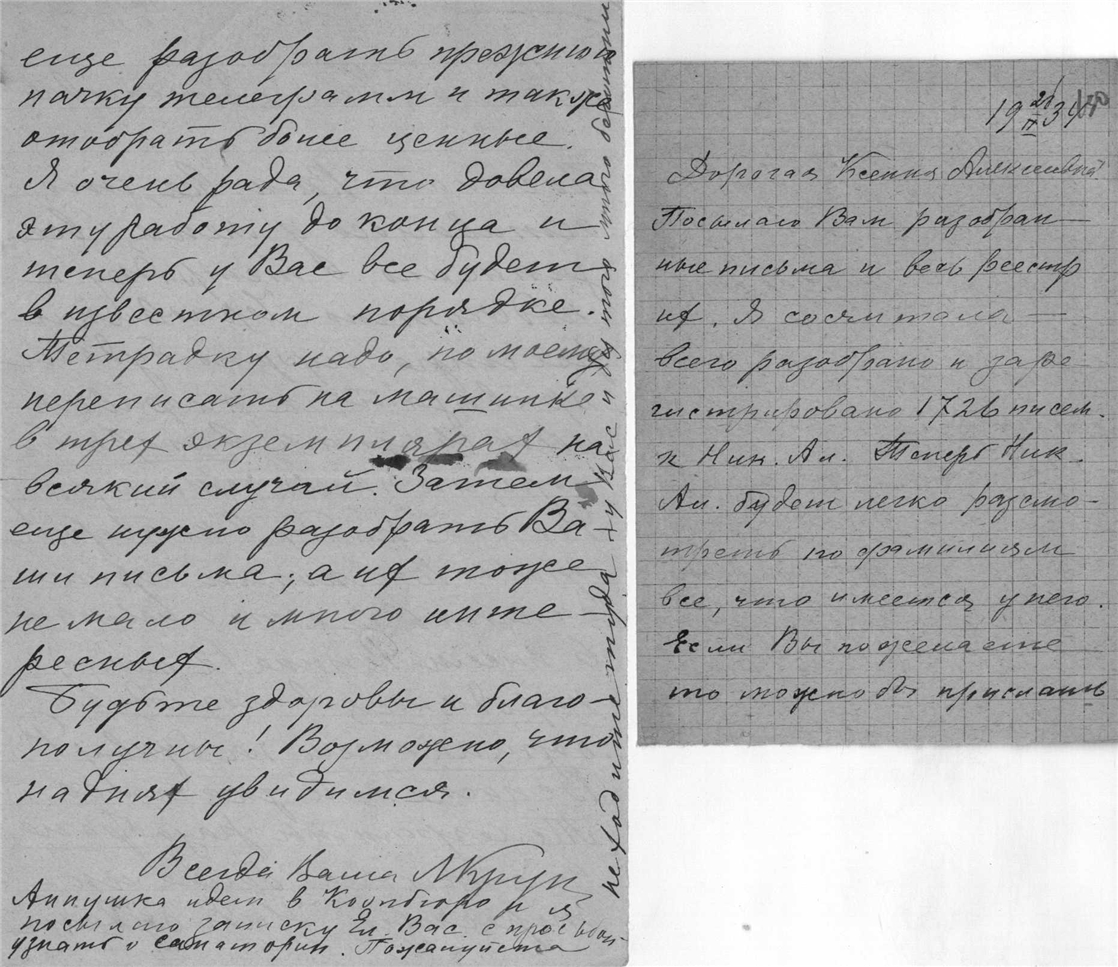 19 21/II 34
Дорогая Ксения Алексеевна!
Посылаю Вам разобран-
ные письма и весь реестр
их. Я сосчитала —
всего разобрано и заре-
гистрировано 1726 писем
к Ник. Ал. Теперь Ник.
Ал. будет легко разсмо-
треть по фамилиям
все, что имеется у него.
Если Вы пожелаете
то можно бы прислать
еще разобрать прежнюю
пачку телеграмм и также
отобрать более ценные.
Я очень рада, что довела
эту работу до конца и
теперь у Вас все будет
в известном порядке.
Тетрадку надо, по моему
переписать на машинке
в трех экземплярах на
всякий случай. Затем
еще нужно разобрать Ва-
ши письма, а их тоже
не мало и много инте-
ресных.
Будьте здоровы и благо-
получны! Возможно, что
на днях увидимся.
Всегда Ваша МКрук
Аннушка идет в Коопбюро и я
посылаю записку Ел. Вас. с просьбой
узнать о санатории. Пожалуйста
не ходите туда, у Вас и без того много